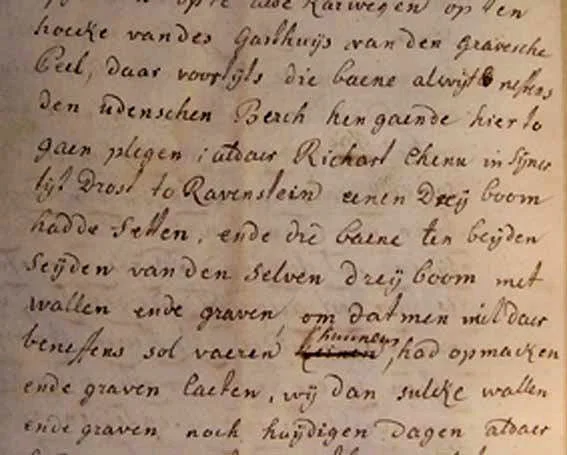 op te alde Karwegen op ten
hoecke vandes Gasthuijs van den Gravesche
Peel, daar voortijts die baene alwijts neffens
den udenschen Berch hen gaende hier to
gaen plegen; aldaer Richart Chenu in sijner
tijt Drost to Ravenstein eenen Dreij boom
hadde setten, ende die baene ten beijden
seijden van den selven dreij boom met
wallen ende graven, om datmen niet daer
beneffens sol vaeren kunnen, had opmacken
ende graven laeten, wij dan sulcke wallen
ende graven noch huijdigen dagen aldaer